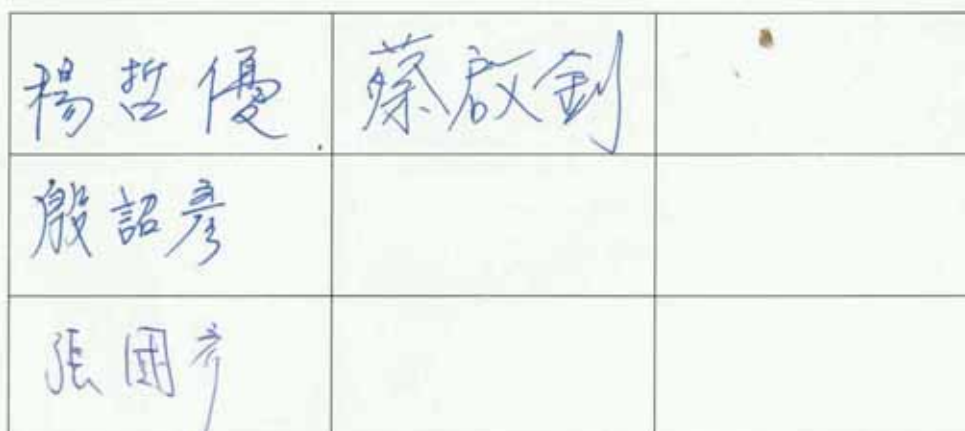 楊哲優 蔡啟釗
殷詔彥
張國彥